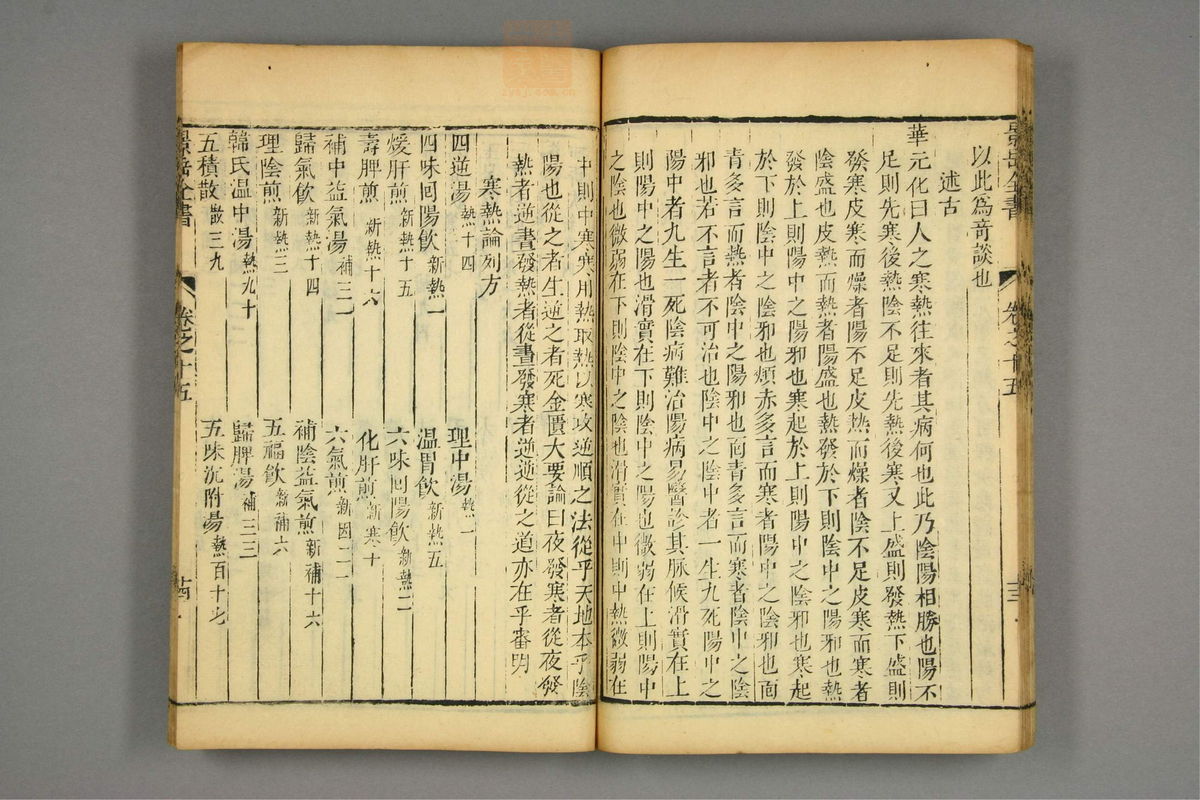 景岳全書 卷之十五 十三
以此爲奇談也
述古
華元化曰人之寒熱往來者其病何也此乃陰陽相勝也陽不
足則先寒後熱陰不足則先熱後寒又上盛則發熱下盛則
發寒皮寒而燥者陽不足皮热而燥者陰不足皮寒而寒者
陰盛也皮熱而熱者陽盛也熱發於下則陰中之陽邪也熱
發於上則陽中之陽邪也寒起於上則陽中之陰邪也寒起
於下則陰中之陰邪也頰赤多言而寒者陽中之陰邪也面
青多言而熱者陰中之陽邪也面青多言而寒者陰中之陰
邪也若不言者不可治也陰中之陰中者一生九死陽中之
陽中者九生一死陰病難治陽病易醫診其脉候滑實在上
則陽中之陽也滑實在下則陰中之陽也微弱在上則陽中
之陰也微弱在下則陰中之陰也滑實在中則中熱微弱在
中則中寒寒用熱取熱以寒攻逆順之法從乎天地本乎陰
陽也從之者生逆之者死金匱大要論曰夜發寒者從夜發
熱者逆晝發熱者從晝發寒者逆逆從之道亦在乎審明
寒熱論列方
四逆湯 熱十四 理中湯 熱一
四味回陽飲 新熱一 温胃飲 新熱五
煖肝煎 新熱十五 六味回陽飲 新熱二
壽脾煎 新熱十六 化肝煎 新寒十
補中益氣湯 補三一 六氣煎 新因二一
歸氣飲 新熱十四 補陰益氣煎 新補十六
理陰煎 新熱三 五福飲 新補六
韓氏温中湯 熱九十 歸脾湯 補三三
五積散 散三九 五味沉附湯 熱百十七
景岳全書 卷之十五 十四